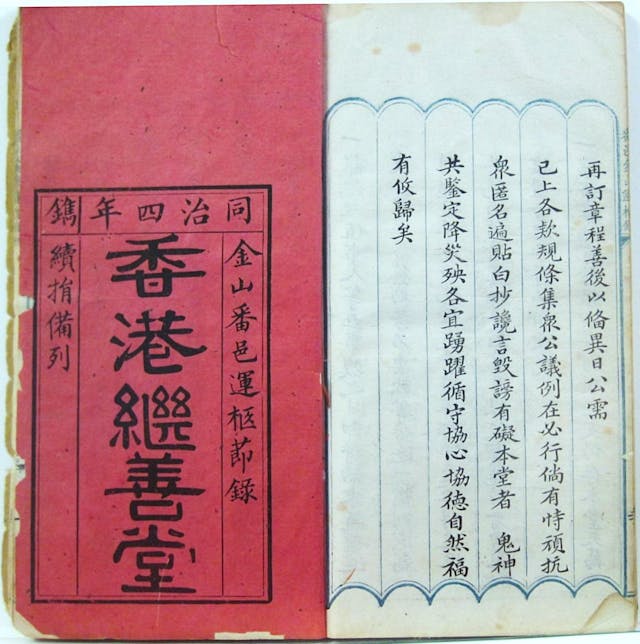 再訂章程善後以俻異日公需
已上各欵規條集衆公議例在必行倘有恃頑抗
衆匿名遍貼白抄讒言毀謗有礙本堂者　鬼神
共鑒定降災殃各宜踴躍循守協心協德自然福
有攸歸矣
同治四年鐫
金山番邑運柩莭錄
香港繼善堂
續捐備列